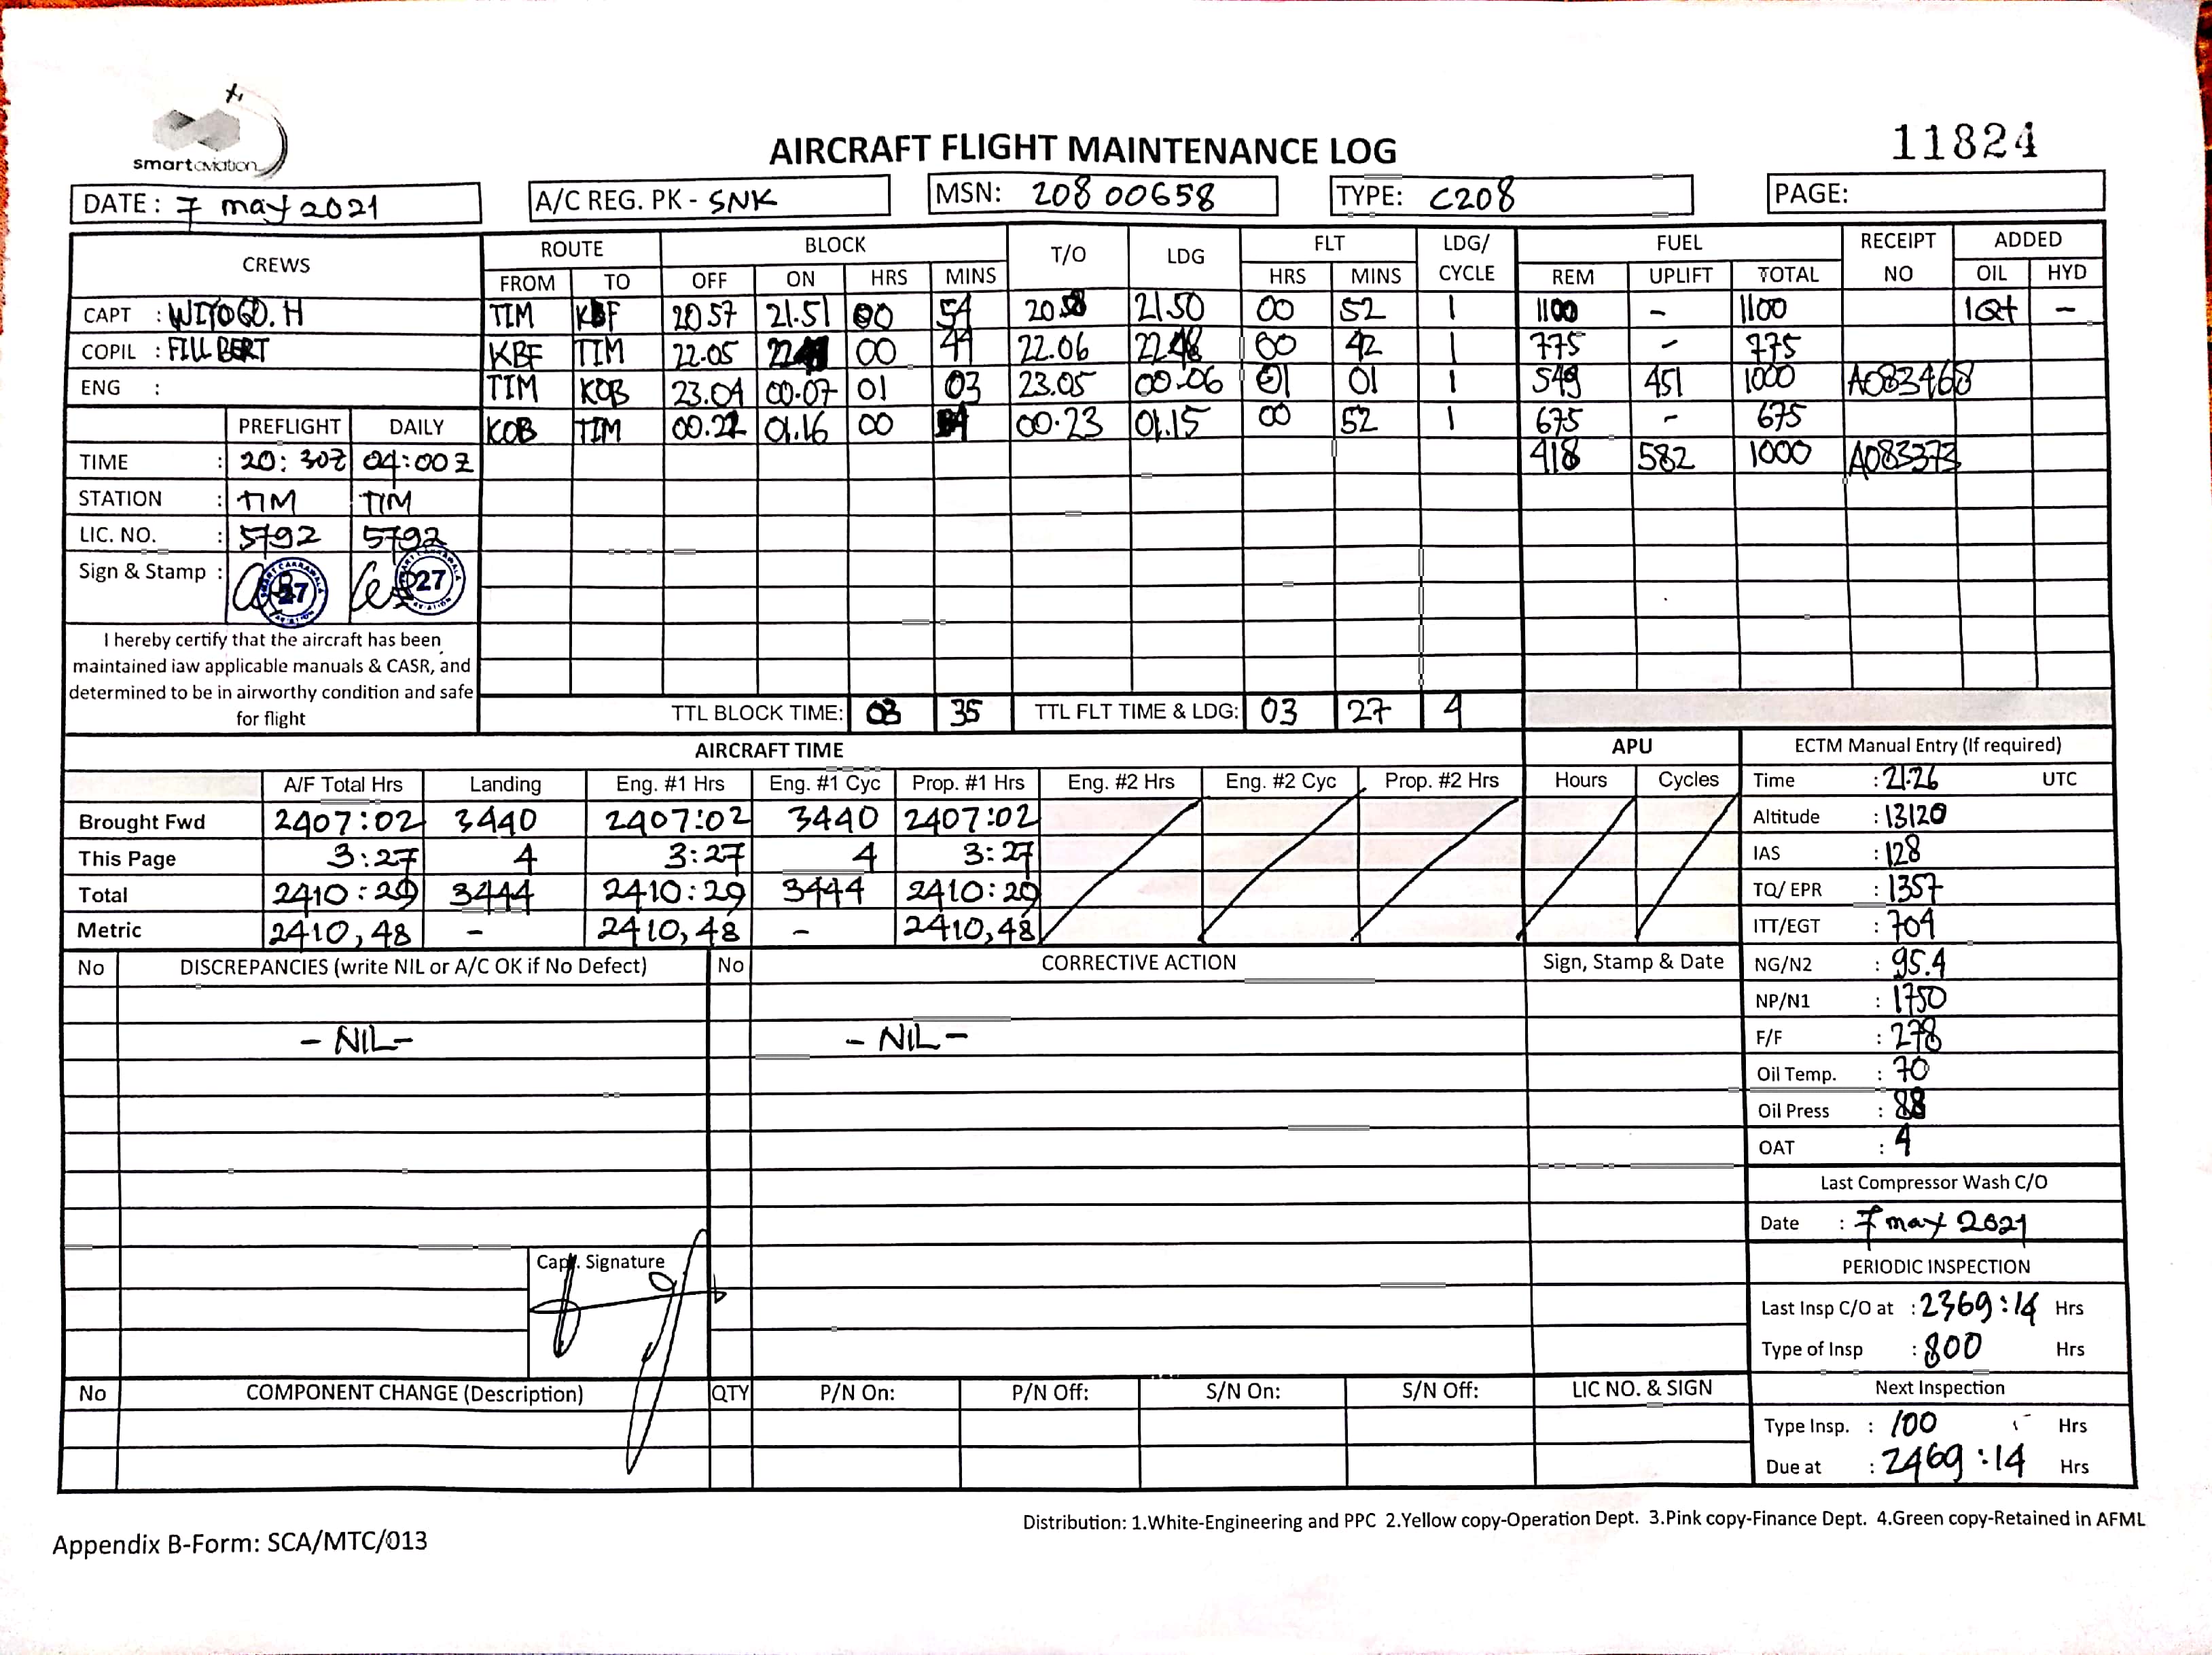 smart aviation
AIRCRAFT FLIGHT MAINTENANCE LOG
11824
DATE : 7 may 2021 A/C REG. PK - SNK MSN: 208 00658 TYPE: C208 PAGE:
CREWS ROUTE BLOCK T/O LDG FLT LDG/ CYCLE FUEL RECEIPT NO ADDED
FROM TO OFF ON HRS MINS HRS MINS REM UPLIFT TOTAL OIL HYD
CAPT : WIYOGO. H TIM KBF 20 57 21.51 00 54 20.58 21.50 00 52 1 1100 - 1100 1Qt -
COPIL : FILLBERT KBF TIM 22.05 00 44 22.06 22.48 00 42 1 775 - 775
ENG : TIM KOB 23.04 00.07 01 03 23.05 00.06 01 01 1 549 451 1000 A083468
PREFLIGHT DAILY KOB TIM 00.22 01.16 00 54 00.23 01.15 00 52 1 675 - 675
TIME : 20:30Z 04:00Z 418 582 1000 A083373
STATION : TIM TIM
LIC. NO. : 5792 5792
Sign & Stamp : 27 27
I hereby certify that the aircraft has been
maintained iaw applicable manuals & CASR, and
determined to be in airworthy condition and safe
for flight
TTL BLOCK TIME: 03 35 TTL FLT TIME & LDG: 03 27 4
AIRCRAFT TIME APU ECTM Manual Entry (If required)
A/F Total Hrs Landing Eng. #1 Hrs Eng. #1 Cyc Prop. #1 Hrs Eng. #2 Hrs Eng. #2 Cyc Prop. #2 Hrs Hours Cycles Time : 21.26 UTC
Brought Fwd 2407:02 3440 2407:02 3440 2407:02 Altitude : 13120
This Page 3:27 4 3:27 4 3:27 IAS : 128
Total 2410:29 3444 2410:29 3444 2410:29 TQ/ EPR : 1357
Metric 2410,48 - 2410,48 - 2410,48 ITT/EGT : 704
No DISCREPANCIES (write NIL or A/C OK if No Defect) No CORRECTIVE ACTION Sign, Stamp & Date NG/N2 : 95.4
NP/N1 : 1750
- NIL - - NIL - F/F : 278
Oil Temp. : 70
Oil Press : 88
OAT : 4
Last Compressor Wash C/O
Date : 7 may 2021
Capt. Signature
PERIODIC INSPECTION
Last Insp C/O at : 2369:14 Hrs
Type of Insp : 800 Hrs
No COMPONENT CHANGE (Description) QTY P/N On: P/N Off: S/N On: S/N Off: LIC NO. & SIGN Next Inspection
Type Insp. : 100 Hrs
Due at : 2469:14 Hrs
Distribution: 1.White-Engineering and PPC 2.Yellow copy-Operation Dept. 3.Pink copy-Finance Dept. 4.Green copy-Retained in AFML
Appendix B-Form: SCA/MTC/013